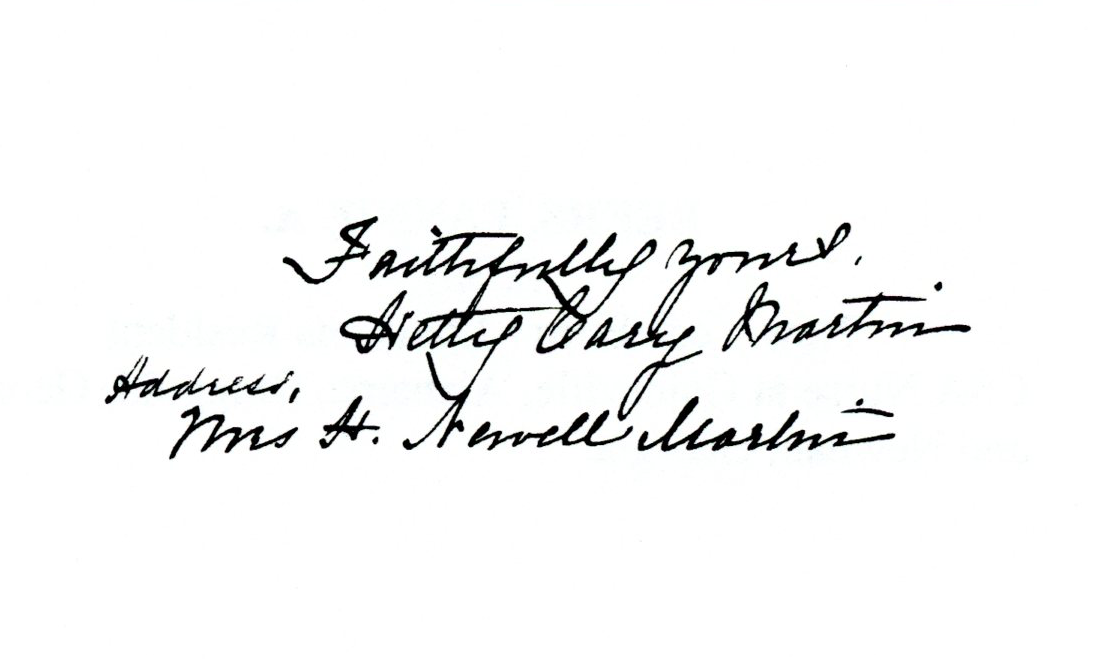 Faithfully yours.
Hetty Cary Martin
Address,
Mrs H. Newell Martin